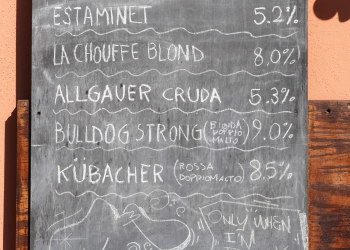 ESTAMINET 5.2%
LA CHOUFFE BLOND 8,0%
ALLGAUER CRUDA 5.3%
BULLDOG STRONG (BIONDA DOPPIO MALTO) 9.0%
KÜBACHER (ROSSA DOPPIOMALTO) 8.5%
"ONLY WHEN
I'M